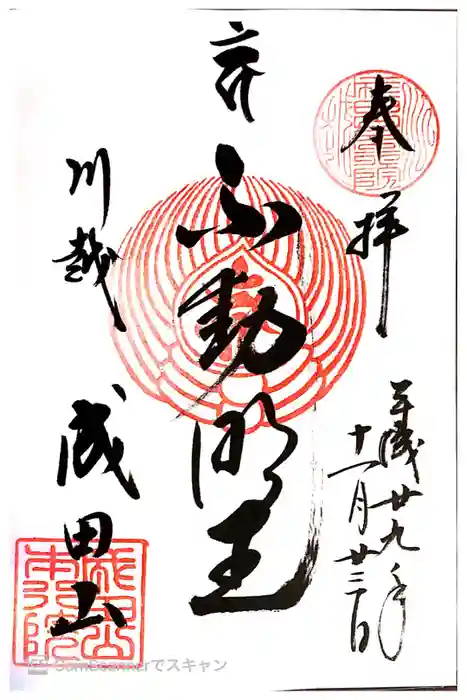 奉拝
平成廿九年
十一月廿三日
不動明王
川越
成田山
CamScannerでスキャン